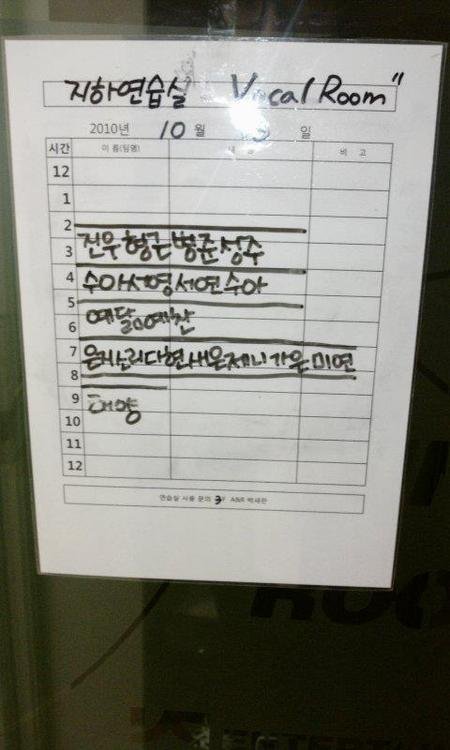 지하연습실 Vocal Room"
2010년 10 월 일
시간 이 름(팀명) 내 용 비 고
12
1
2
3 진우 형근 병준 성수
4 수아 서영 서연 수아
5
6 예달 예찬
7 은사 리다 현새 은제니 가은 미연
8
9 태양
10
11
12
연습실 사용 문의 3F A&R